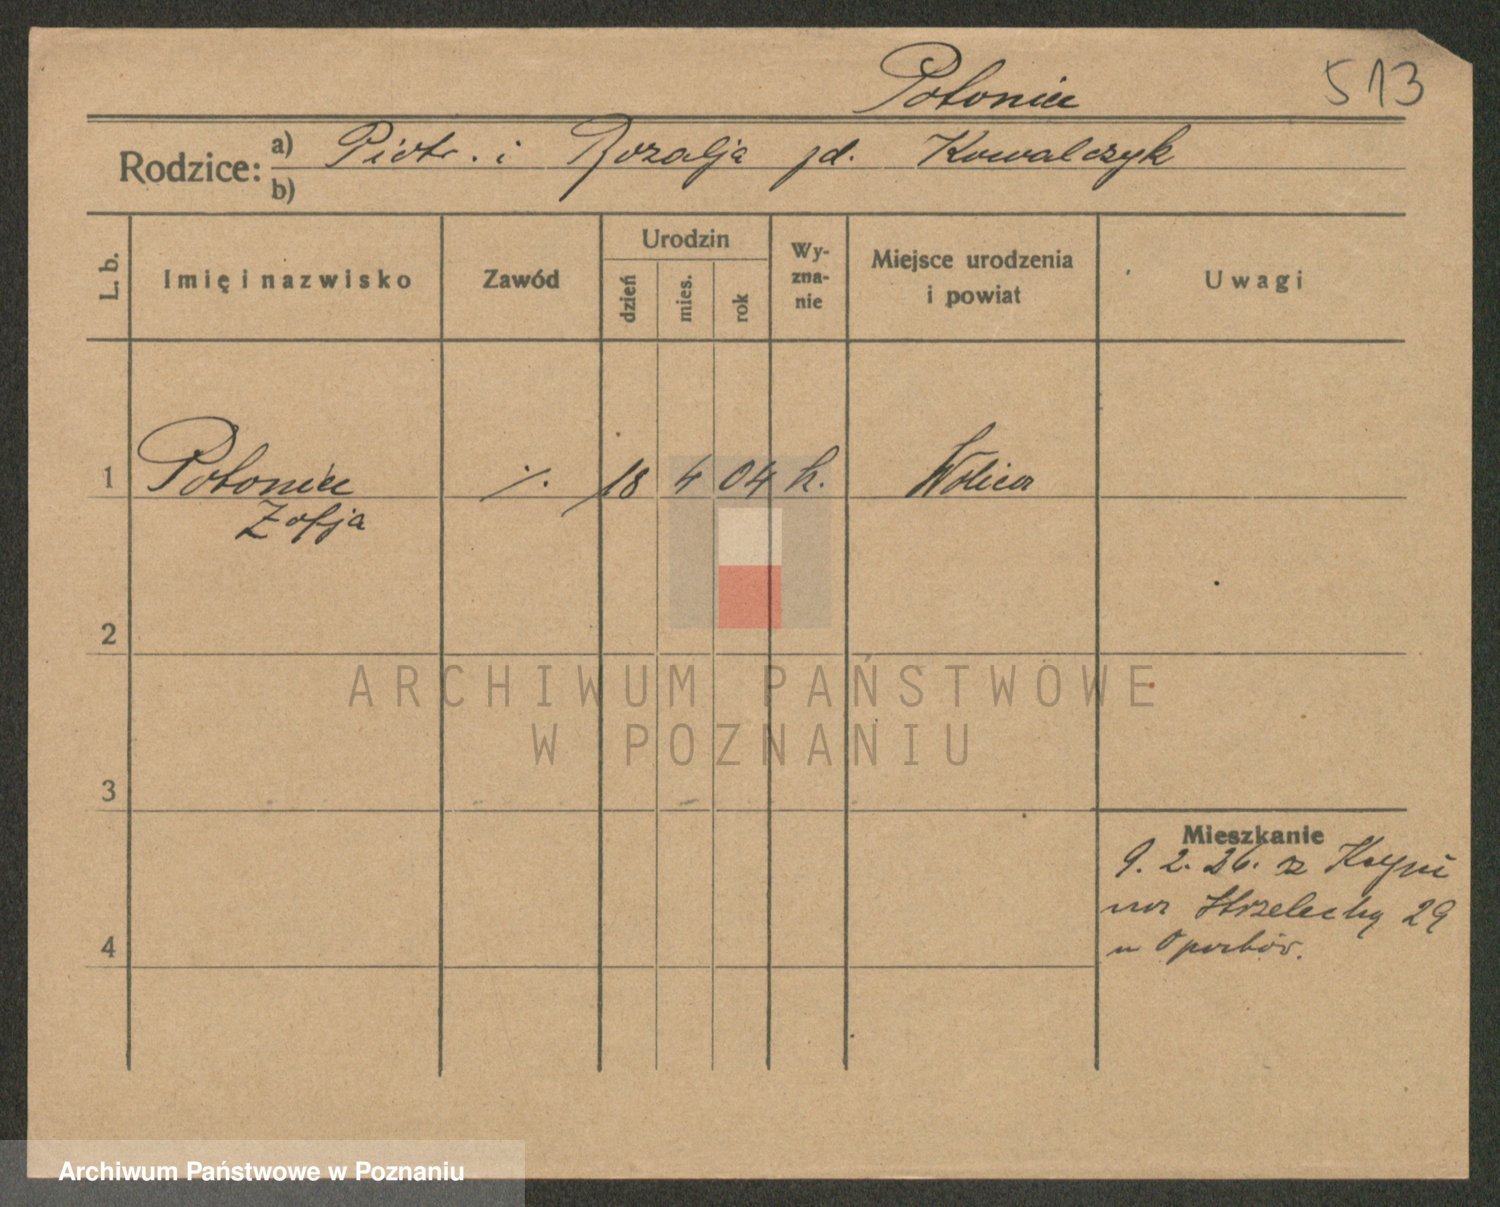 513
Rodzice: a) Piotr i Rozalja zd. Kowalczyk
b)
L. b.
Imię i nazwisko
Zawód
Urodzin
dzień
mies.
rok
Wy-
zna-
nie
Miejsce urodzenia
i powiat
Uwagi
1 ·/. 18 4 04 k. Wolica
Zofja
2
3
4
Mieszkanie
9. 2. 26. z
Strzelecka 29
u
ARCHIWUM PAŃSTWOWE
W POZNANIU
Archiwum Państwowe w Poznaniu